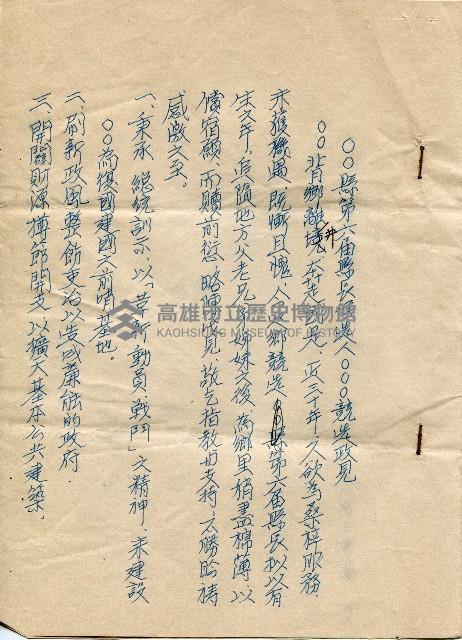 ○○縣第六屆縣長候選人○○○競選政見
○○背鄉離井、奔走　　、三十年、久欲為桑梓服務、
未獲機遇、既慚且愧、今　鄉競選　縣第六屆縣長、擬以有
生之年、追隨地方父老兄弟姊妹之後、為鄉里稍盡棉薄、以
償宿願、而贖前愆、略陳　見、敬乞指教與支持、不勝盼禱
感激之至。
一、秉承　總統訓示、以「革新動員、戰鬥」之精神、來建設
○○為復國建國之前哨基地。
二、刷新政風、整飭吏治、以造成廉能的政府
三、開闢財源、撙節開支、以擴大基本公共建築、
高雄市立歷史博物館
KAOHSIUNG MUSEUM OF HISTORY